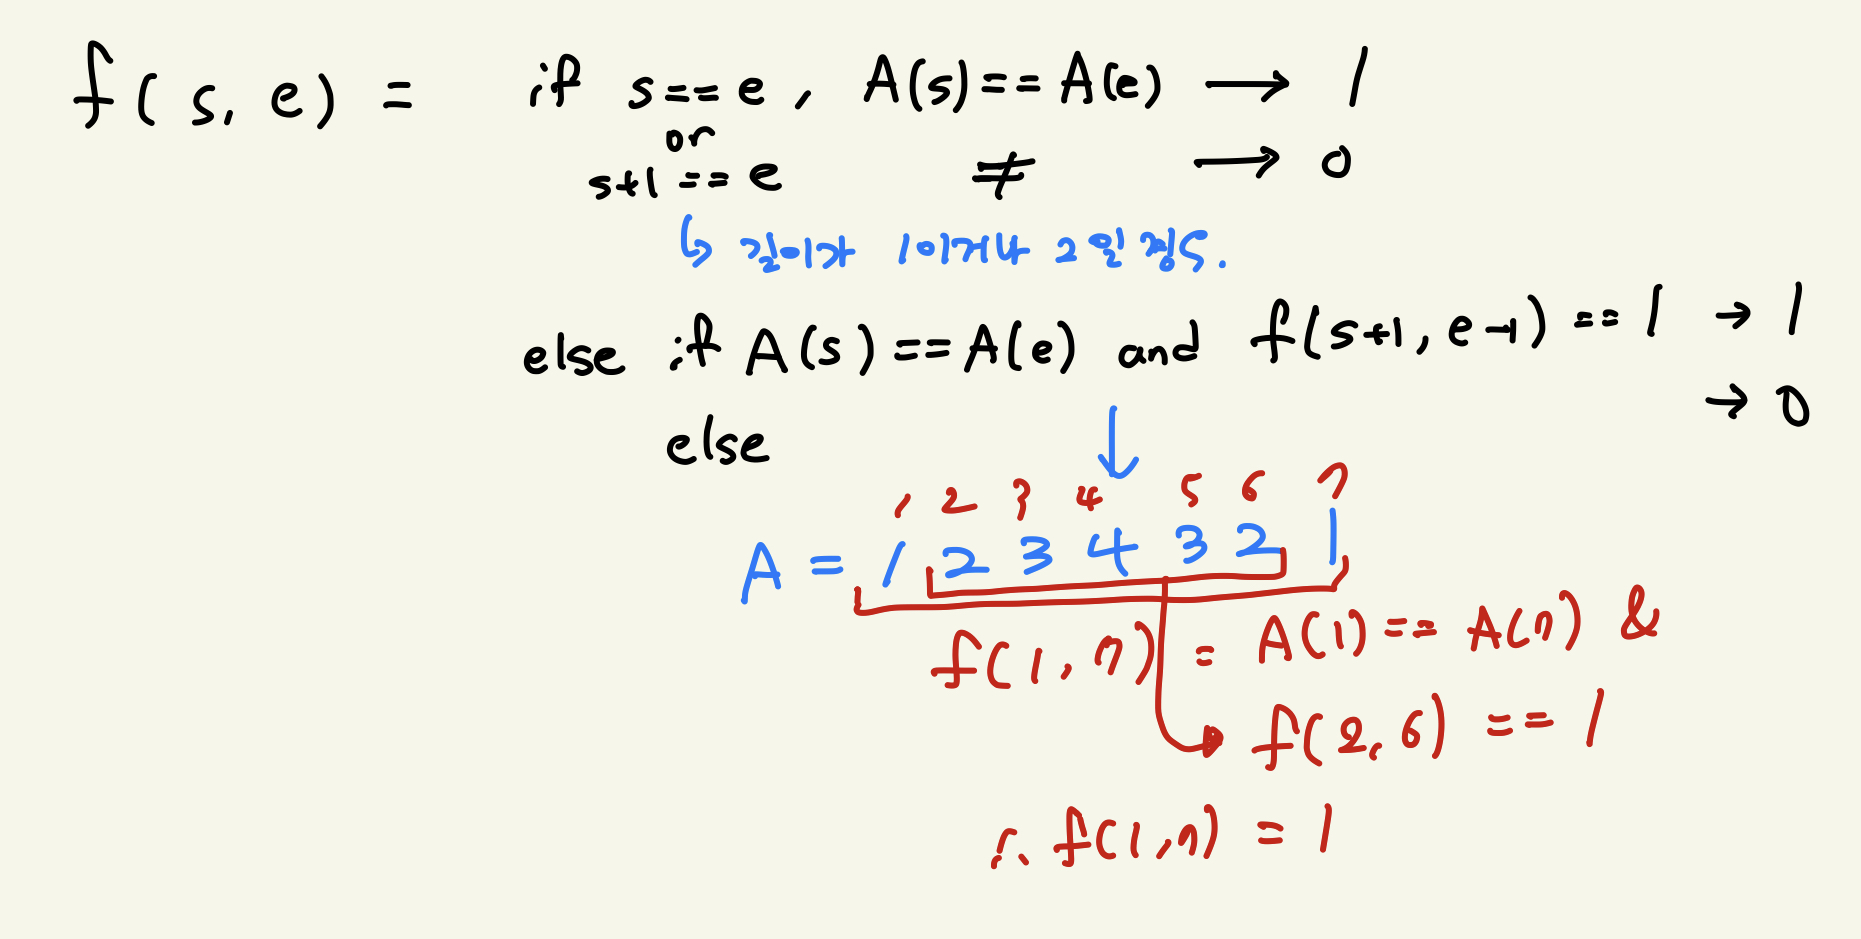 f(s, e) = if s==e, A(s)==A(e) → 1
or
s+1 == e ≠ → 0
↳ 길이가 1이거나 2일 경우.
else if A(s)==A(e) and f(s+1, e-1) == 1 → 1
else → 0
↓
1 2 3 4 5 6 7
A = 1 2 3 4 3 2 1
f(1, 7) = A(1) == A(7) &
f(2, 6) == 1
∴ f(1, 7) = 1